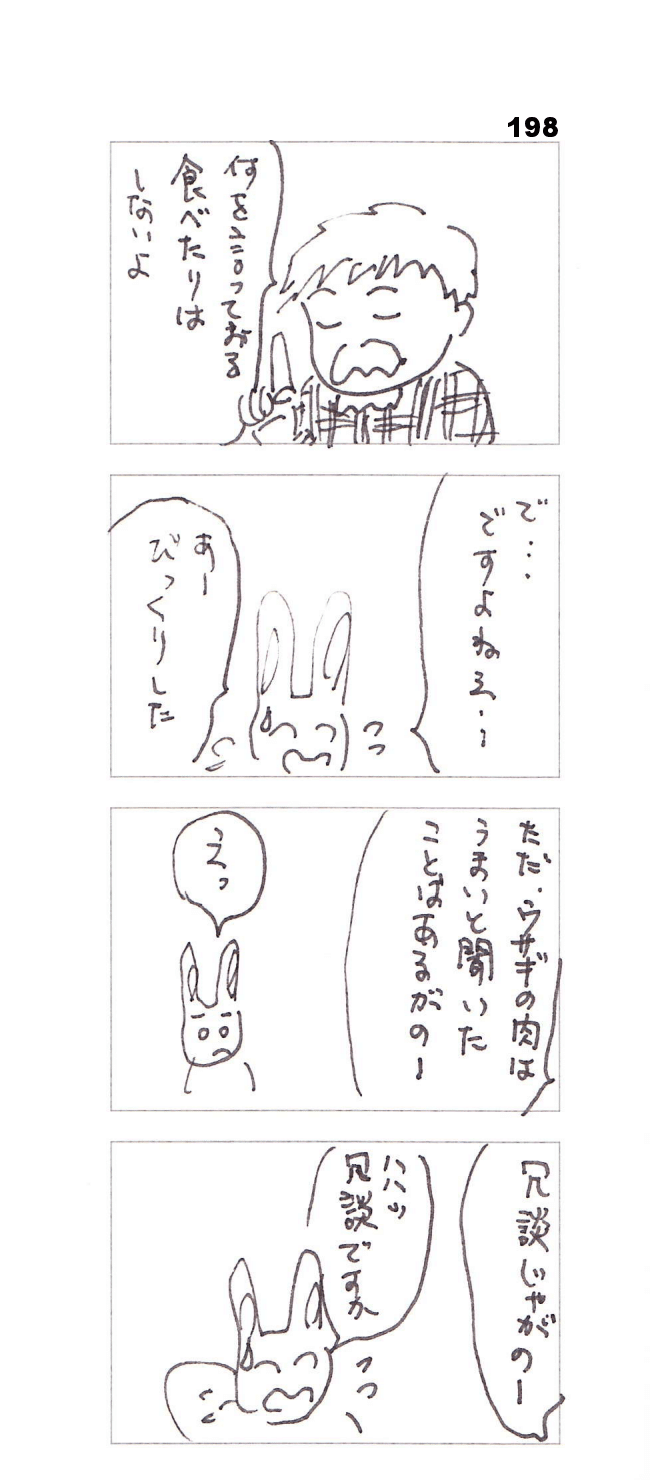 198
何を言っておる
食べたりは
しないよ
で・・・
ですよねえ・・ー
あー
びっくりした
ただ、ウサギの肉は
うまいと聞いた
ことはあるがのー
えっ
冗談じゃがのー
ハハッ
冗談ですか